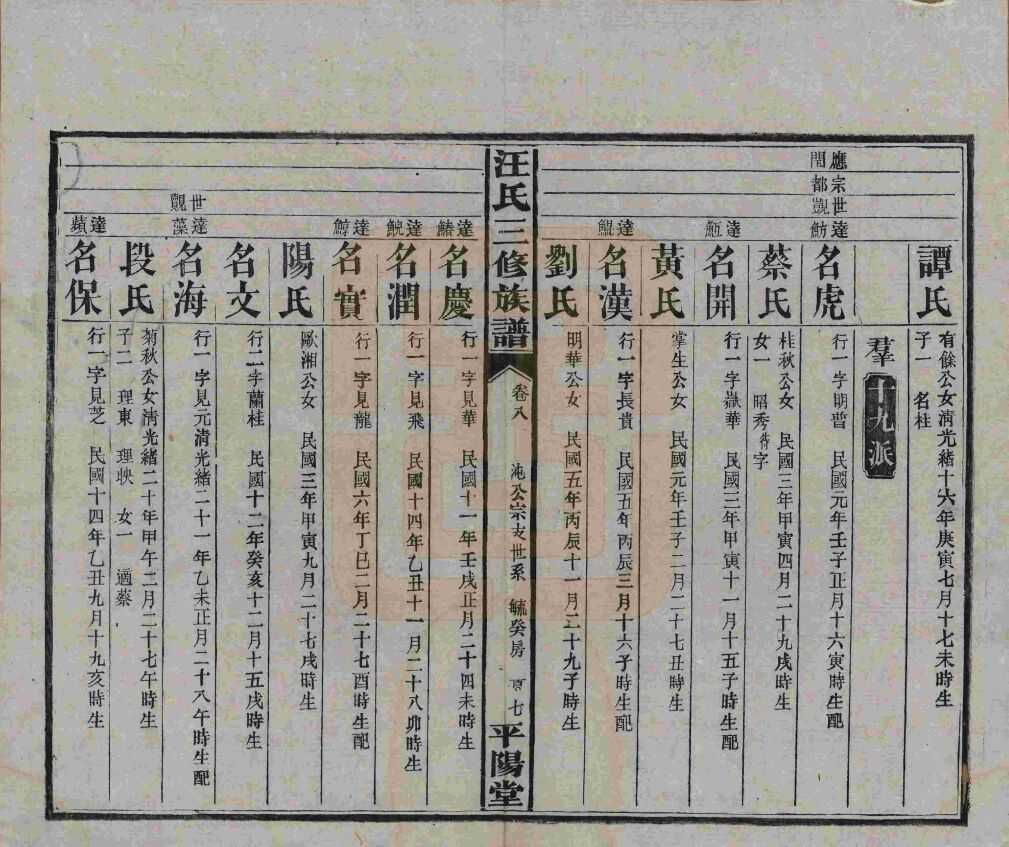 譚氏
有餘公女淸光緒十六年庚寅七月十七未時生
子一　名桂
羣
十九派
應宗世達
閗都觀魴
名虎
行一字明晢　民國元年壬子正月十六寅時生配
蔡氏
桂秋公女　民國三年甲寅四月二十九戌時生
女一　昭秀待字
達
名開
行一字嶽華　民國三年甲寅十一月十五子時生配
黃氏
掌生公女　民國元年壬子二月二十七丑時生
達鯤
名漢
行一字長貴　民國五年丙辰三月十六子時生配
劉氏
明華公女　民國五年丙辰十一月二十九子時生
汪氏三修族譜
卷八　沌公宗支世系　毓癸房　頁七
平陽堂
達鰆
名慶
行一字見華　民國十一年壬戌正月二十四未時生
達鯢
名潤
行一字見飛　民國十四年乙丑十一月二十八卯時生
達鯨
名實
行一字見龍　民國六年丁巳二月二十七酉時生配
陽氏
歐湘公女　民國三年甲寅九月二十七戌時生
名文
行二字蘭桂　民國十二年癸亥十二月十五戌時生
世達
觀藻
名海
行一字見元淸光緒二十一年乙未正月二十八午時生配
段氏
菊秋公女淸光緒二十年甲午二月二十七午時生
子二　理東　理映　女一　適蔡
達蘋
名保
行一字見芝　民國十四年乙丑九月十九亥時生